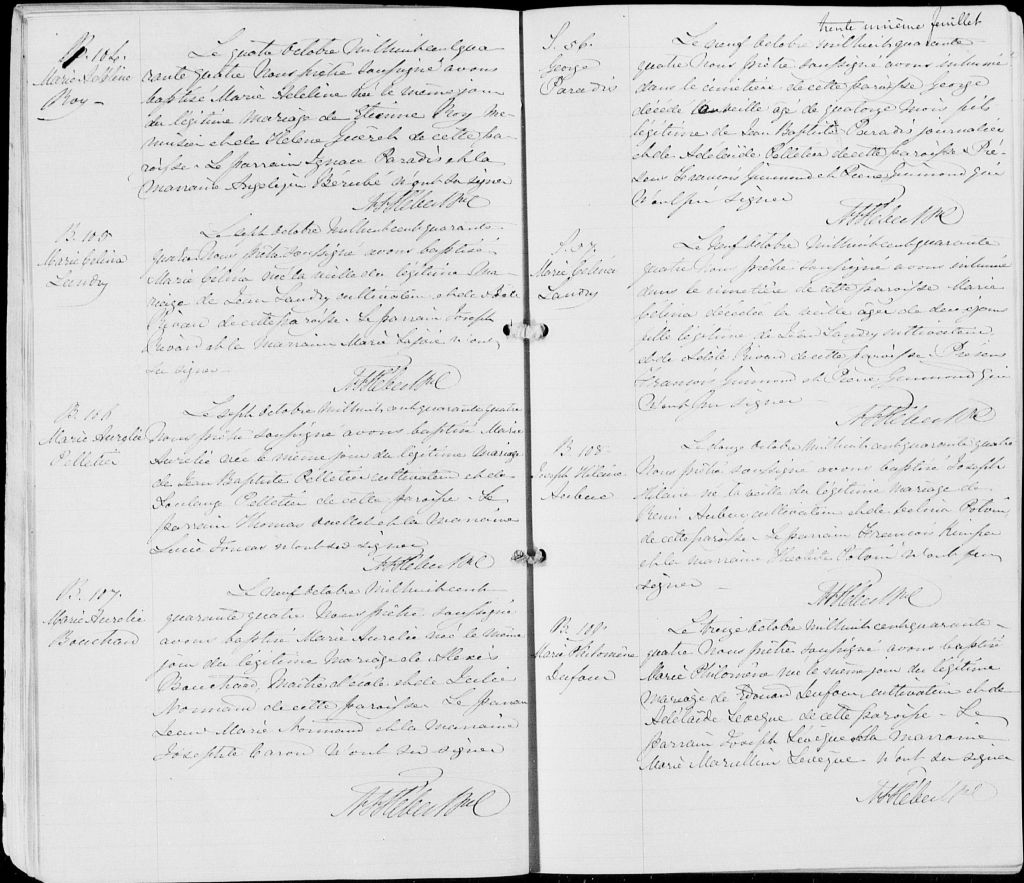 B. 104.
Marie Adéline
Roy –
Le quatre Octobre Mil huit cent qua
rante quatre Nous prêtre soussigné avons
baptisé Marie Adeline née le même jour
du légitime Mariage de Etienne Roy Me
nuisier et de Helène Guéret de cette pa
roisse. Le parrain Ignace Paradis et la
Marraine Angelique Bérubé n'ont su signer
B. 105
Marie Célina
Landry
Le sept Octobre Mil huit cent quarante
quatre Nous prêtre soussigné avons baptisé
Marie Célina née la veille du légitime Ma-
riage de Léon Landry cultivateur et de
Rivard de cette paroisse. Le parrain Joseph
Rivard et la Marraine Marie n'ont
su signer –
B. 106
Marie Aurelie
Pelletier
Le sept Octobre Mil huit cent quarante quatre
Nous prêtre soussigné avons baptisé Marie
Aurelie née le même jour du légitime Mariage
de Jean Baptiste Pelletier cultivateur et de
Soulange Pelletier de cette paroisse – Le
parrain Thomas Ouellet et la Marraine
Lucie n'ont su signer
B. 107.
Marie Aurelie
Bouchard
Le neuf Octobre Mil huit cent
quarante quatre Nous prêtre soussigné
avons baptisé Marie Aurelie née le même
jour du légitime Mariage de Alexis
Bouchard, Maître d'école et de
Normand de cette paroisse. Le parrain
Jean Marie Normand et la marraine
Josephte Caron n'ont su signer
trente unième feuillet
S. 56.
George
Paradis
Le neuf Octobre Mil huit quarante
quatre Nous prêtre soussigné avons inhumé
dans le cimetière de cette paroisse George
décédé la veille agé de quatorze mois fils
légitime de Jean Baptiste Paradis journalier
et de Adelaïde Pelletier de cette paroisse. Pré
sens François Guimond et Pierre Guimond qui
n'ont pu signer
S. 57
Marie Célina
Landry
Le neuf Octobre Mil huit cent quarante
quatre Nous prêtre soussigné avons inhumé
dans le cimetière de cette paroisse Marie
Célina décédée la veille agée de deux jours
fille légitime de Léon Landry cultivateur
et de Rivard de cette paroisse. Présens
François Guimond et Pierre Guimond qui
n'ont pu signer –
B. 108.
Joseph Hilaire
Le onze Octobre Mil huit cent quarante quatre
Nous prêtre soussigné avons baptisé Joseph
Hilaire né la veille du légitime mariage de
Remi cultivateur et de Célina Potvin
de cette paroisse – Le parrain François
et la marraine Théotiste Potvin n'ont pu
signer –
B. 109.
Marie Philomène
Dufour
Le treize Octobre Mil huit cent quarante –
quatre Nous prêtre soussigné avons baptisé
Marie Philomène née le même jour du légitime
mariage de Edouard Dufour, cultivateur et de
Adélaïde Levêque de cette paroisse – Le
parrain Joseph Levêque et la Marraine
Marie Levêque n'ont su signer